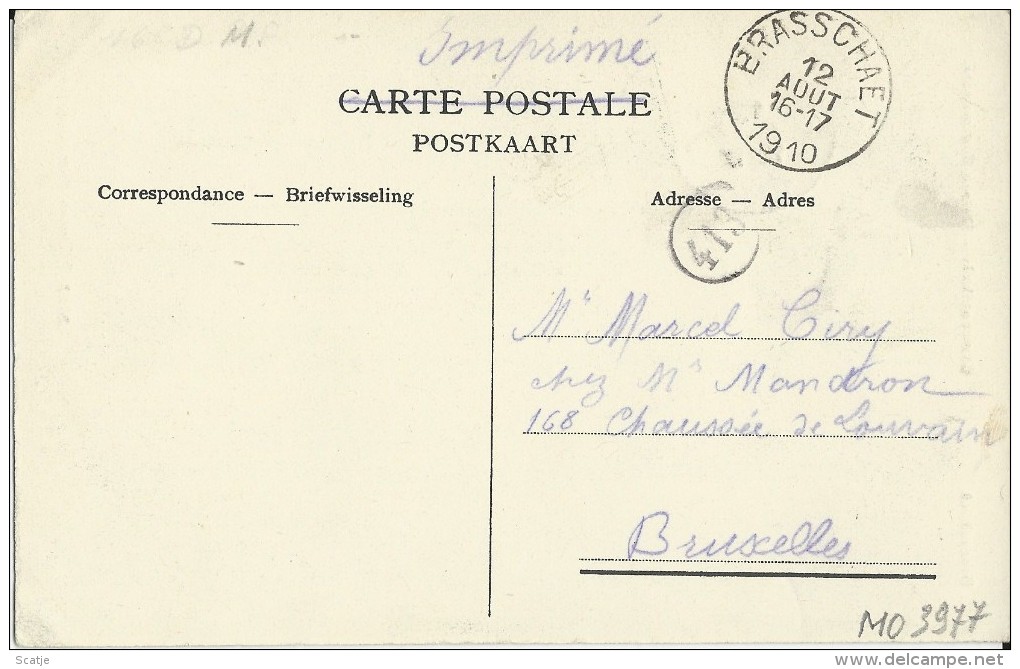 Imprimé
CARTE POSTALE
POSTKAART
BRASSCHAET
12
AOUT
16-17
1910
Correspondance — Briefwisseling
Adresse — Adres
413
Mr Marcel Ciry
chez Mr Mandron
168 Chaussée de Louvain
Bruxelles
MO 3977
Scatje
delcampe.net